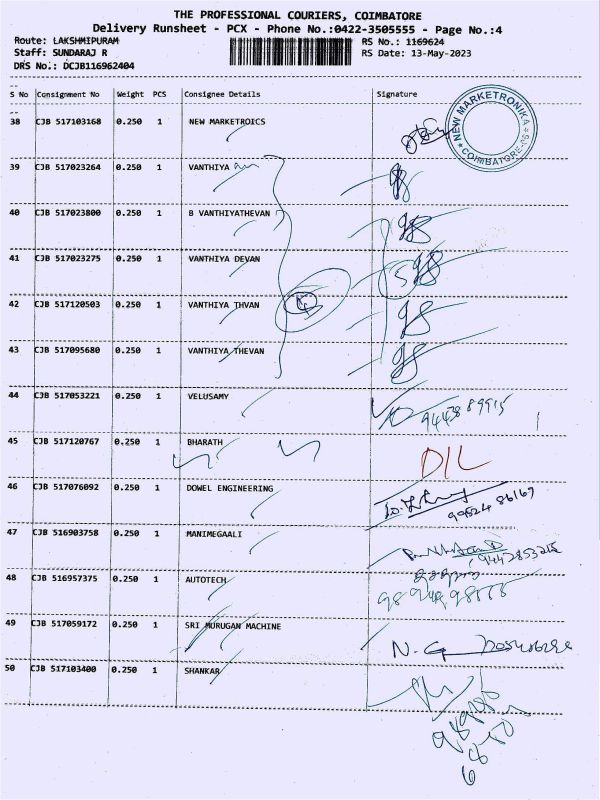 THE PROFESSIONAL COURIERS, COIMBATORE
Delivery Runsheet - PCX - Phone No.:0422-3505555 - Page No.:4
Route: LAKSHMIPURAM RS No.: 1169624
Staff: SUNDARAJ R RS Date: 13-May-2023
DRS No.: DCJB116962404
S No Consignment No Weight PCS Consignee Details Signature
38 CJB 517103168 0.250 1 NEW MARKETROICS
NEW MARKETRONIKA
COIMBATORE
39 CJB 517023264 0.250 1 VANTHIYA
40 CJB 517023800 0.250 1 B VANTHIYATHEVAN
41 CJB 517023275 0.250 1 VANTHIYA DEVAN
42 CJB 517120503 0.250 1 VANTHIYA THVAN
43 CJB 517095680 0.250 1 VANTHIYA THEVAN
44 CJB 517053221 0.250 1 VELUSAMY
45 CJB 517120767 0.250 1 BHARATH D/L
46 CJB 517076092 0.250 1 DOWEL ENGINEERING
99524 86167
47 CJB 516903758 0.250 1 MANIMEGAALI
48 CJB 516957375 0.250 1 AUTOTECH
49 CJB 517059172 0.250 1 SRI MURUGAN MACHINE N. G
50 CJB 517103400 0.250 1 SHANKAR